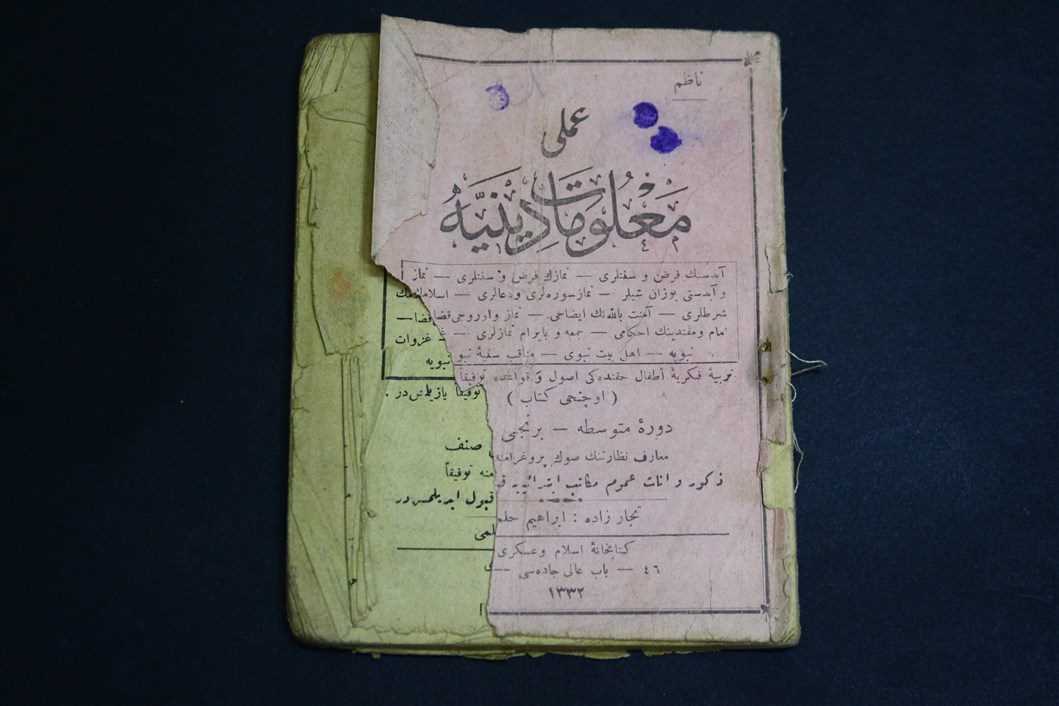 ناظم
عملی
مَعْلُومَاتِ دِينِيَّه
آبدستك فرض و سنتلری — نمازك فرض و سنتلری — نماز
و آبدستی بوزان شیلر — نماز سوره‌لری و دعالری — اسلاملغك
شرطلری — آمنت بالله‌نك ایضاحی — نماز و اوروجی قضا
امام و مقتدینك احكامی — جمعه و بایرام نمازلری — غزوات
نبویه — اهل بیت نبوی — مناقب سنیهٔ نبویه
تربیهٔ فكریهٔ أطفال حقنده‌كی اصول و قواعده توفیقاً یازیلمش‌در .
( اوچنجی كتاب )
دورهٔ متوسطه — برنجی صنف
معارف نظارتنك صوك پروغرامنه توفیقاً
ذكور و اناث عموم مكاتب ابتدائیه قبول ایدیلمش‌در
تجار زاده : ابراهیم حلمی
كتابخانهٔ اسلام و عسكری
٤٦ — باب عالی جاده‌سی —
١٣٣٢